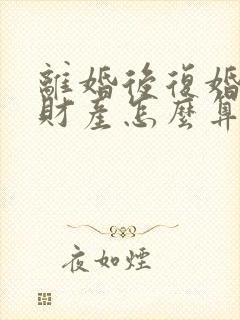 離婚後復婚
財產怎麼算
夜如煙